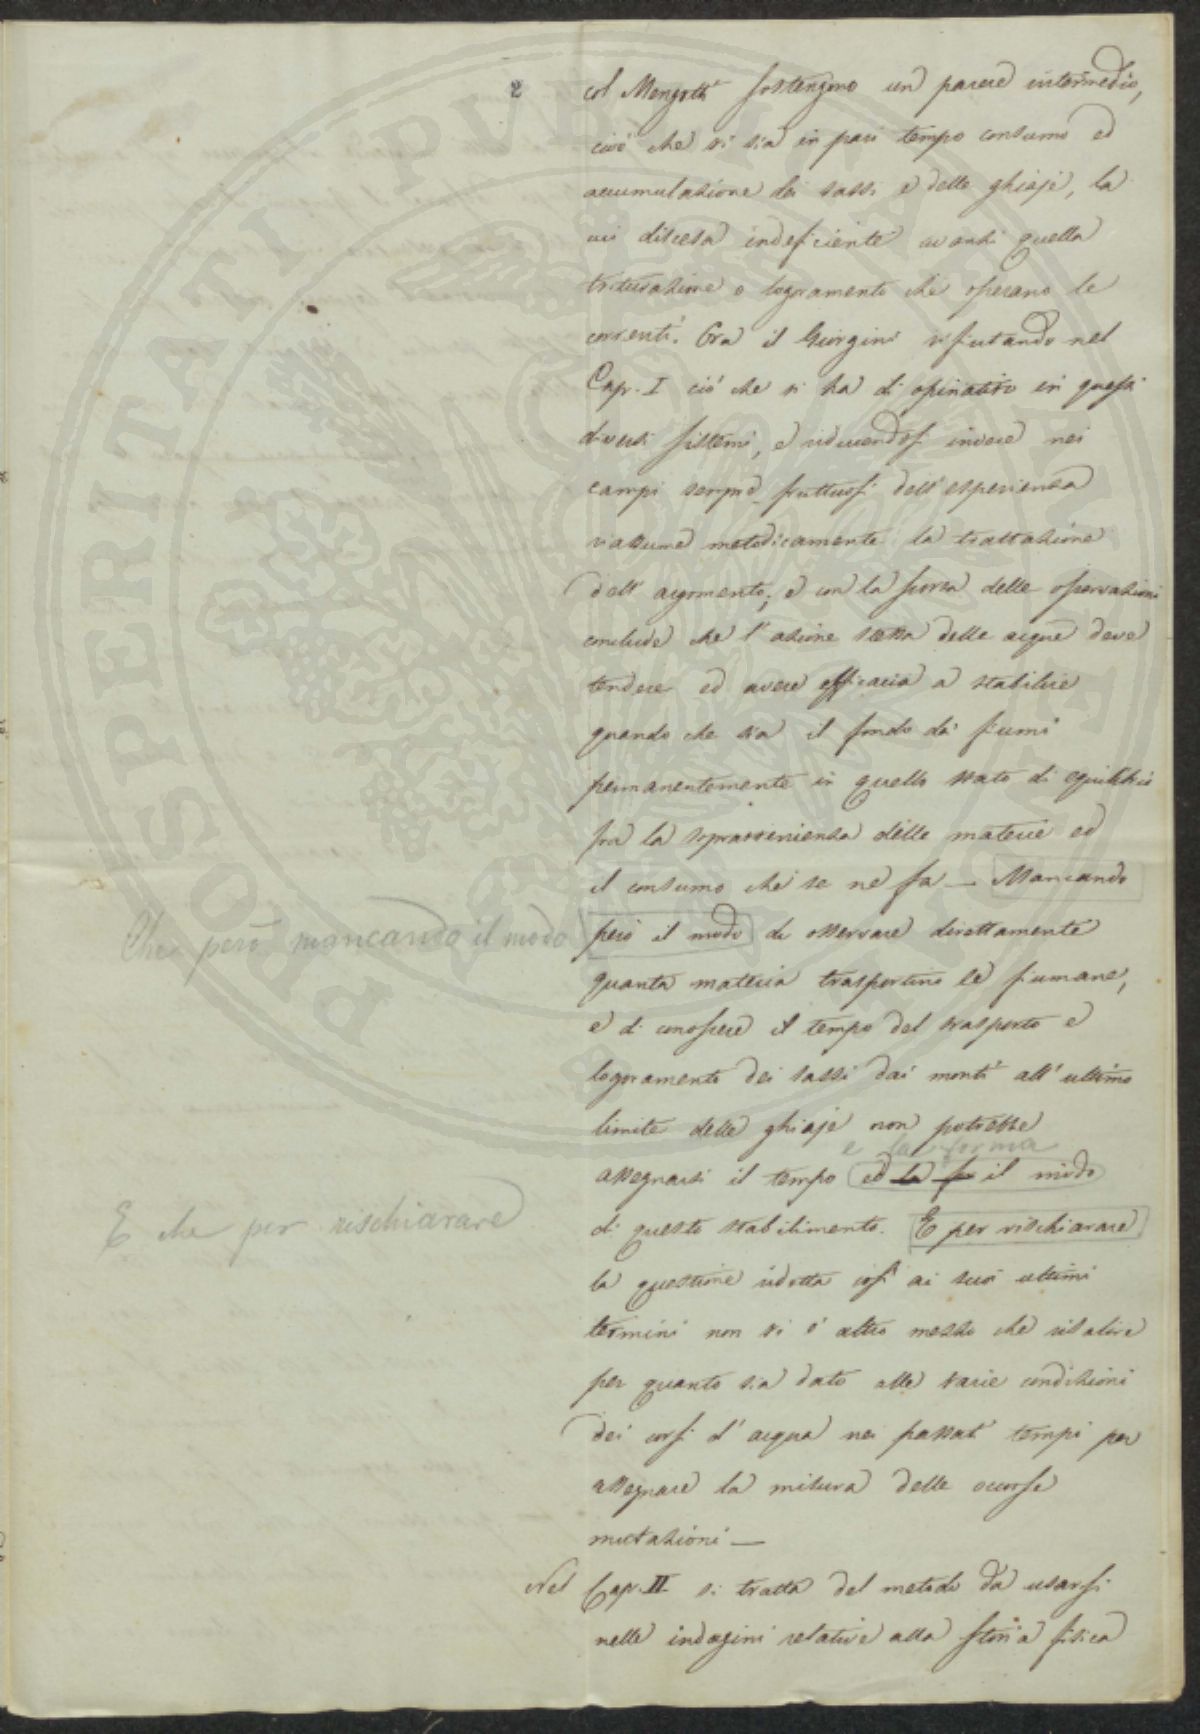 2
col Mengotti sostengono un parere intermedio,
cioè che vi sia in pari tempo consumo ed
accumulazione dei sassi e delle ghiaje, la
cui discesa indeficiente avanti quella
triturazione o logoramento che operano le
correnti. Ora il Giorgini rifiutando nel
Cap. I ciò che vi ha di opinativo in questi
diversi sistemi, e riducendosi invece nei
campi sempre fruttuosi dell'esperienza
riassume metodicamente la trattazione
dell'argomento; e con la scorta delle osservazioni
conclude che l'azione stessa delle acque deve
tendere ed avere efficacia a stabilire
quando che sia il fondo dei fiumi
permanentemente in quello stato di equilibrio
fra la sopravvenienza delle materie ed
il consumo che se ne fa — Mancando
Che però mancando il modo
però il modo di osservare direttamente
quanta materia trasportino le fiumane,
e di conoscere il tempo del trasporto e
logoramento dei sassi dai monti all'ultimo
limite delle ghiaje non potrebbe
e la forma
assegnarsi il tempo ed la fo il modo
E che per rischiarare
di questo stabilimento. E per rischiarare
la questione ridotta così ai suoi ultimi
termini non vi è altro mezzo che risalire
per quanto sia dato alle varie condizioni
dei corsi d'acqua nei passati tempi per
assegnare la misura delle occorse
mutazioni —
Nel Cap. II si tratta del metodo da usarsi
nelle indagini relative alla storia fisica
PROSPERITATI PUBLICAE